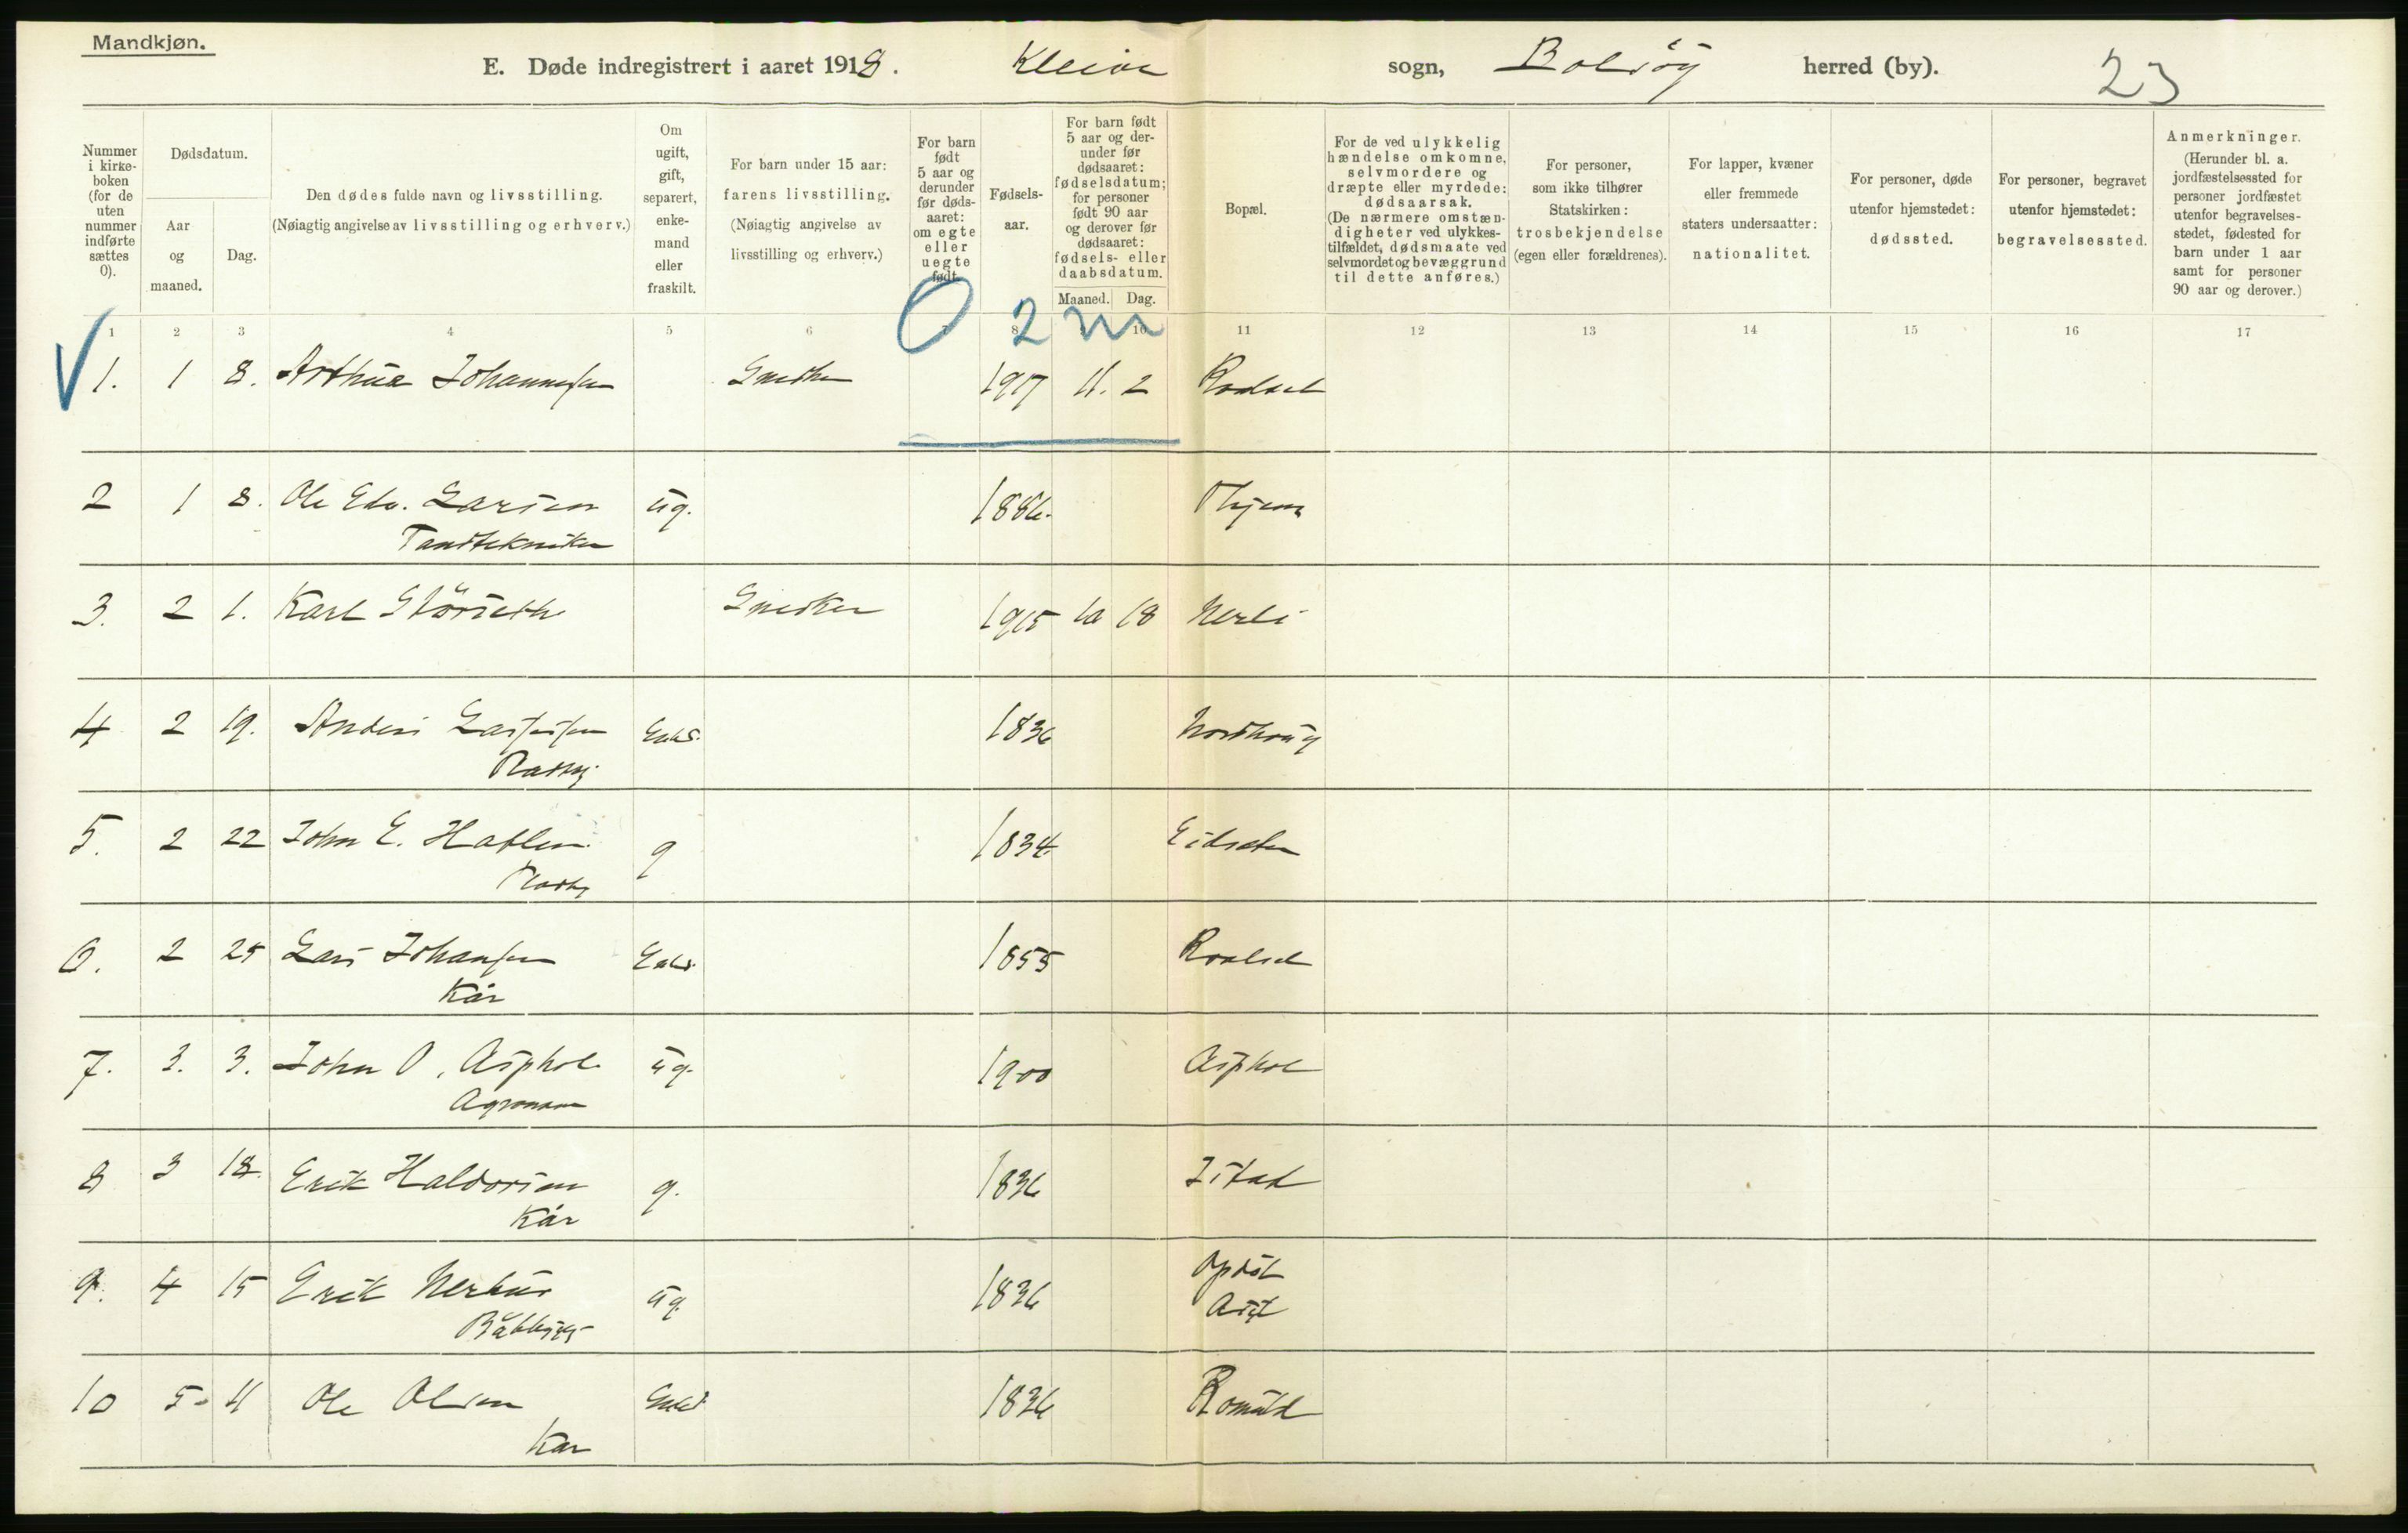 Mandkjøn.
E. Døde indregistrert i aaret 1918. Kleive sogn, Bolsöy herred (by). 23
Nummer i kirkeboken (for de uten nummer indførte sættes 0).
Dødsdatum.
Aar og maaned.
Dag.
Den dødes fulde navn og livsstilling.
(Nøiagtig angivelse av livsstilling og erhverv.)
Om ugift, gift, separert, enkemand eller fraskilt.
For barn under 15 aar: farens livsstilling.
(Nøiagtig angivelse av livsstilling og erhverv.)
For barn født 5 aar og derunder før dødsaaret: om egte eller uegte født.
Fødselsaar.
For barn født 5 aar og derunder før dødsaaret: fødselsdatum; for personer født 90 aar og derover før dødsaaret: fødsels- eller daabsdatum.
Maaned. Dag.
Bopæl.
For de ved ulykkelig hændelse omkomne, selvmordere og dræpte eller myrdede: dødsaarsak.
(De nærmere omstændigheter ved ulykkestilfældet, dødsmaate ved selvmordet og bevæggrund til dette anføres.)
For personer, som ikke tilhører Statskirken: trosbekjendelse (egen eller forældrenes).
For lapper, kvæner eller fremmede staters undersaatter: nationalitet.
For personer, døde utenfor hjemstedet: dødssted.
For personer, begravet utenfor hjemstedet: begravelsessted.
Anmerkninger.
(Herunder bl. a. jordfæstelsessted for personer jordfæstet utenfor begravelsesstedet, fødested for barn under 1 aar samt for personer 90 aar og derover.)
0 2 m
1 2 3 4 5 6 7 8 9 10 11 12 13 14 15 16 17
1. 1 8. Arthur Johannessen Snedker 1917 11. 2
2 1 8. Ole Edv. Larsen ug. 1886.
Tandtekniker
3. 2 1. Karl Störseth Snedker 1915 10 18 Nerli
4 2 19. Anders Lassesen Enkd. 1836 Nordhoug
5. 2 22 John E. g 1834 Eidseter
6. 2 25 Lars Johansen Enkd. 1855
Kår
7. 3. 3. John O. Asphol ug. 1900 Asphol
Agronom
8 3 18. Erik Haldorsen g. 1836 Istad
Kår
9. 4 15 Erik Nerhus ug. 1836 Opdöl
10 5. 11 Ole Olsen Enkd 1836
Kår